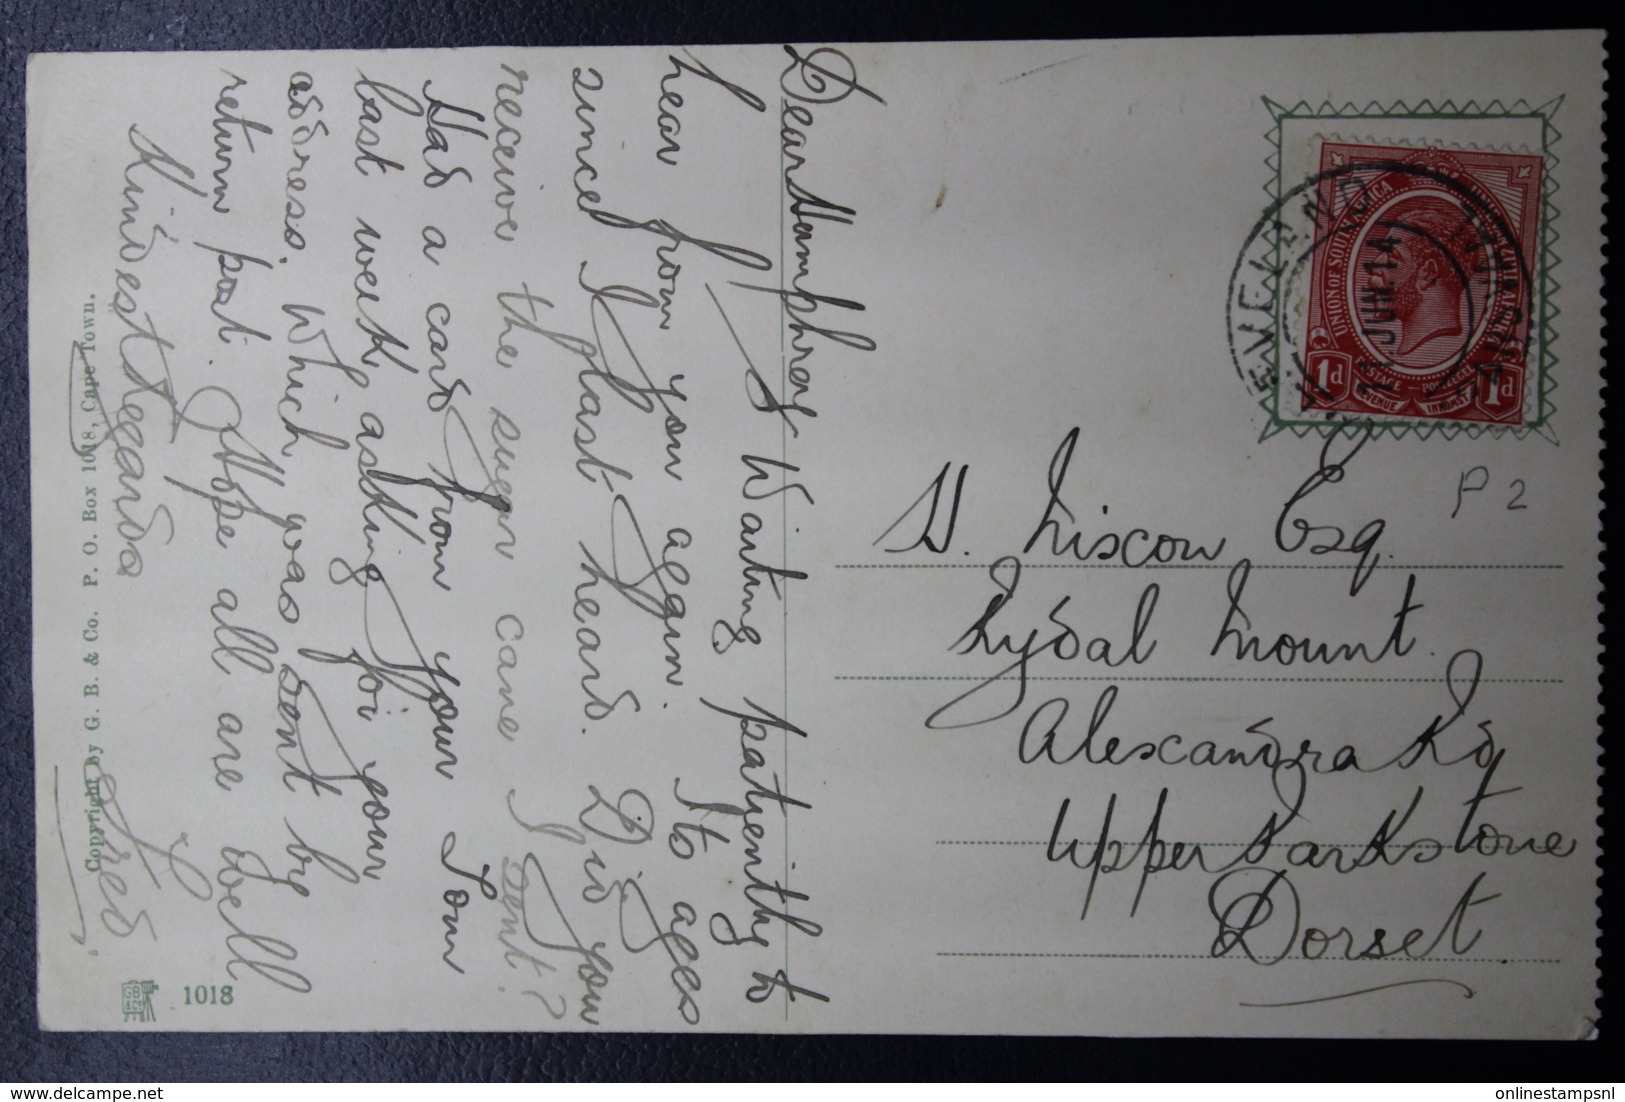 Dear Humphrey
Waiting patiently to
hear from you again. Its ages
since I last heard. Did you
receive the sugar cane I sent?
Had a card from your Tom
last week, asking for your
address. Which was sent by
return post. Hope all are well
Kindest Regards
Fred.
H. Liscow Esq.
Rydal Mount.
Alexandra Rd
Upper Parkstone
Dorset.
P 2
UNION OF SOUTH AFRICA
1d
1d
POSTAGE POSTZEGEL
REVENUE INKOMST
JUN.14
Copyright by G. B. & Co. P. O. Box 1018, Cape Town.
GB
&Co
1018
onlinestampsnl